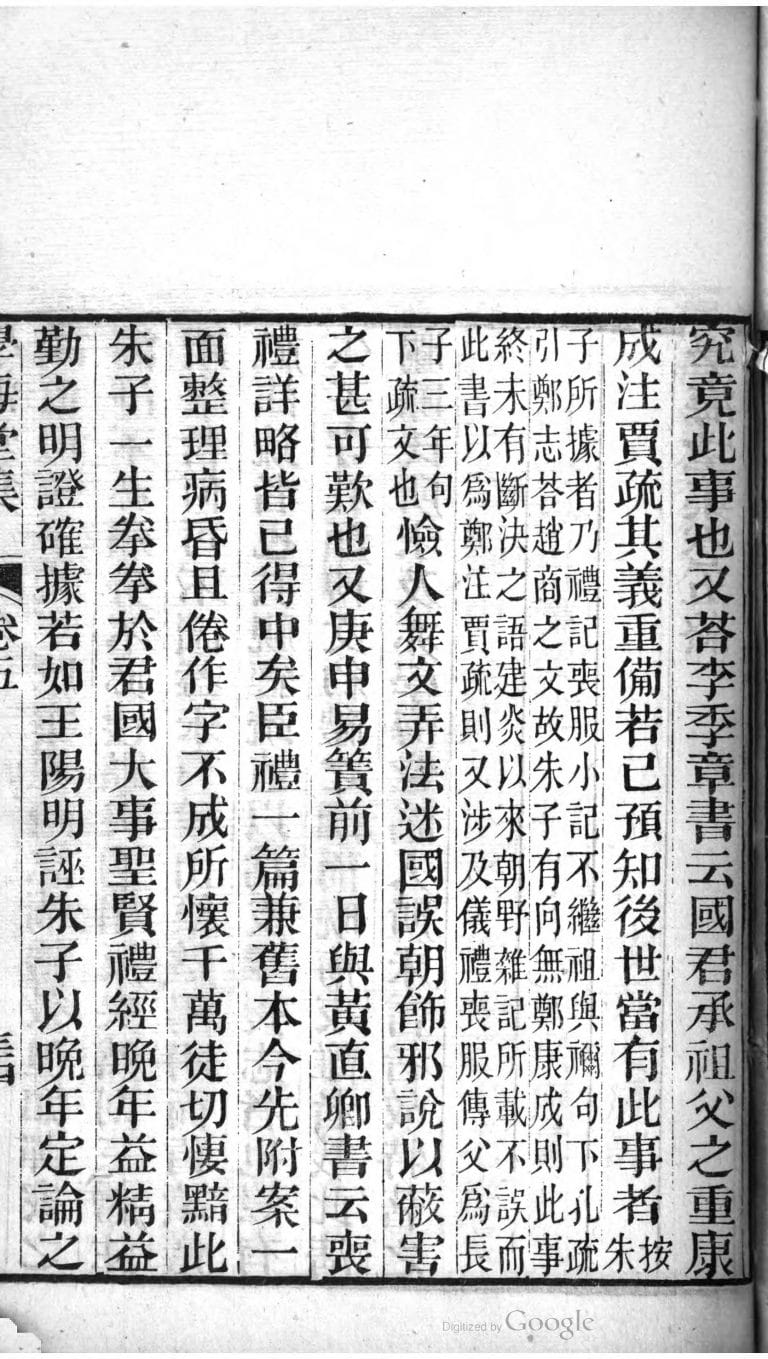 究竟此事也又荅李季章書云國君承祖父之重康
成注賈疏其義重備若已預知後世當有此事者按
朱
子所據者乃禮記喪服小記不繼祖與禰句下孔疏
引鄭志荅趙商之文故朱子有向無鄭康成則此事
終未有斷決之語建炎以來朝野雜記所載不誤而
此書以爲鄭注賈疏則又涉及儀禮喪服傳父爲長
子三年句
下疏文也
憸人舞文弄法迷國誤朝飾邪說以蔽害
之甚可歎也又庚申易簀前一日與黃直卿書云喪
禮詳略皆已得中矣臣禮一篇兼舊本今先附案一
面整理病昏且倦作字不成所懷千萬徒切悽黯此
朱子一生拳拳於君國大事聖賢禮經晚年益精益
勤之明證確據若如王陽明誣朱子以晚年定論之
學海堂集
卷五
Digitized by Google